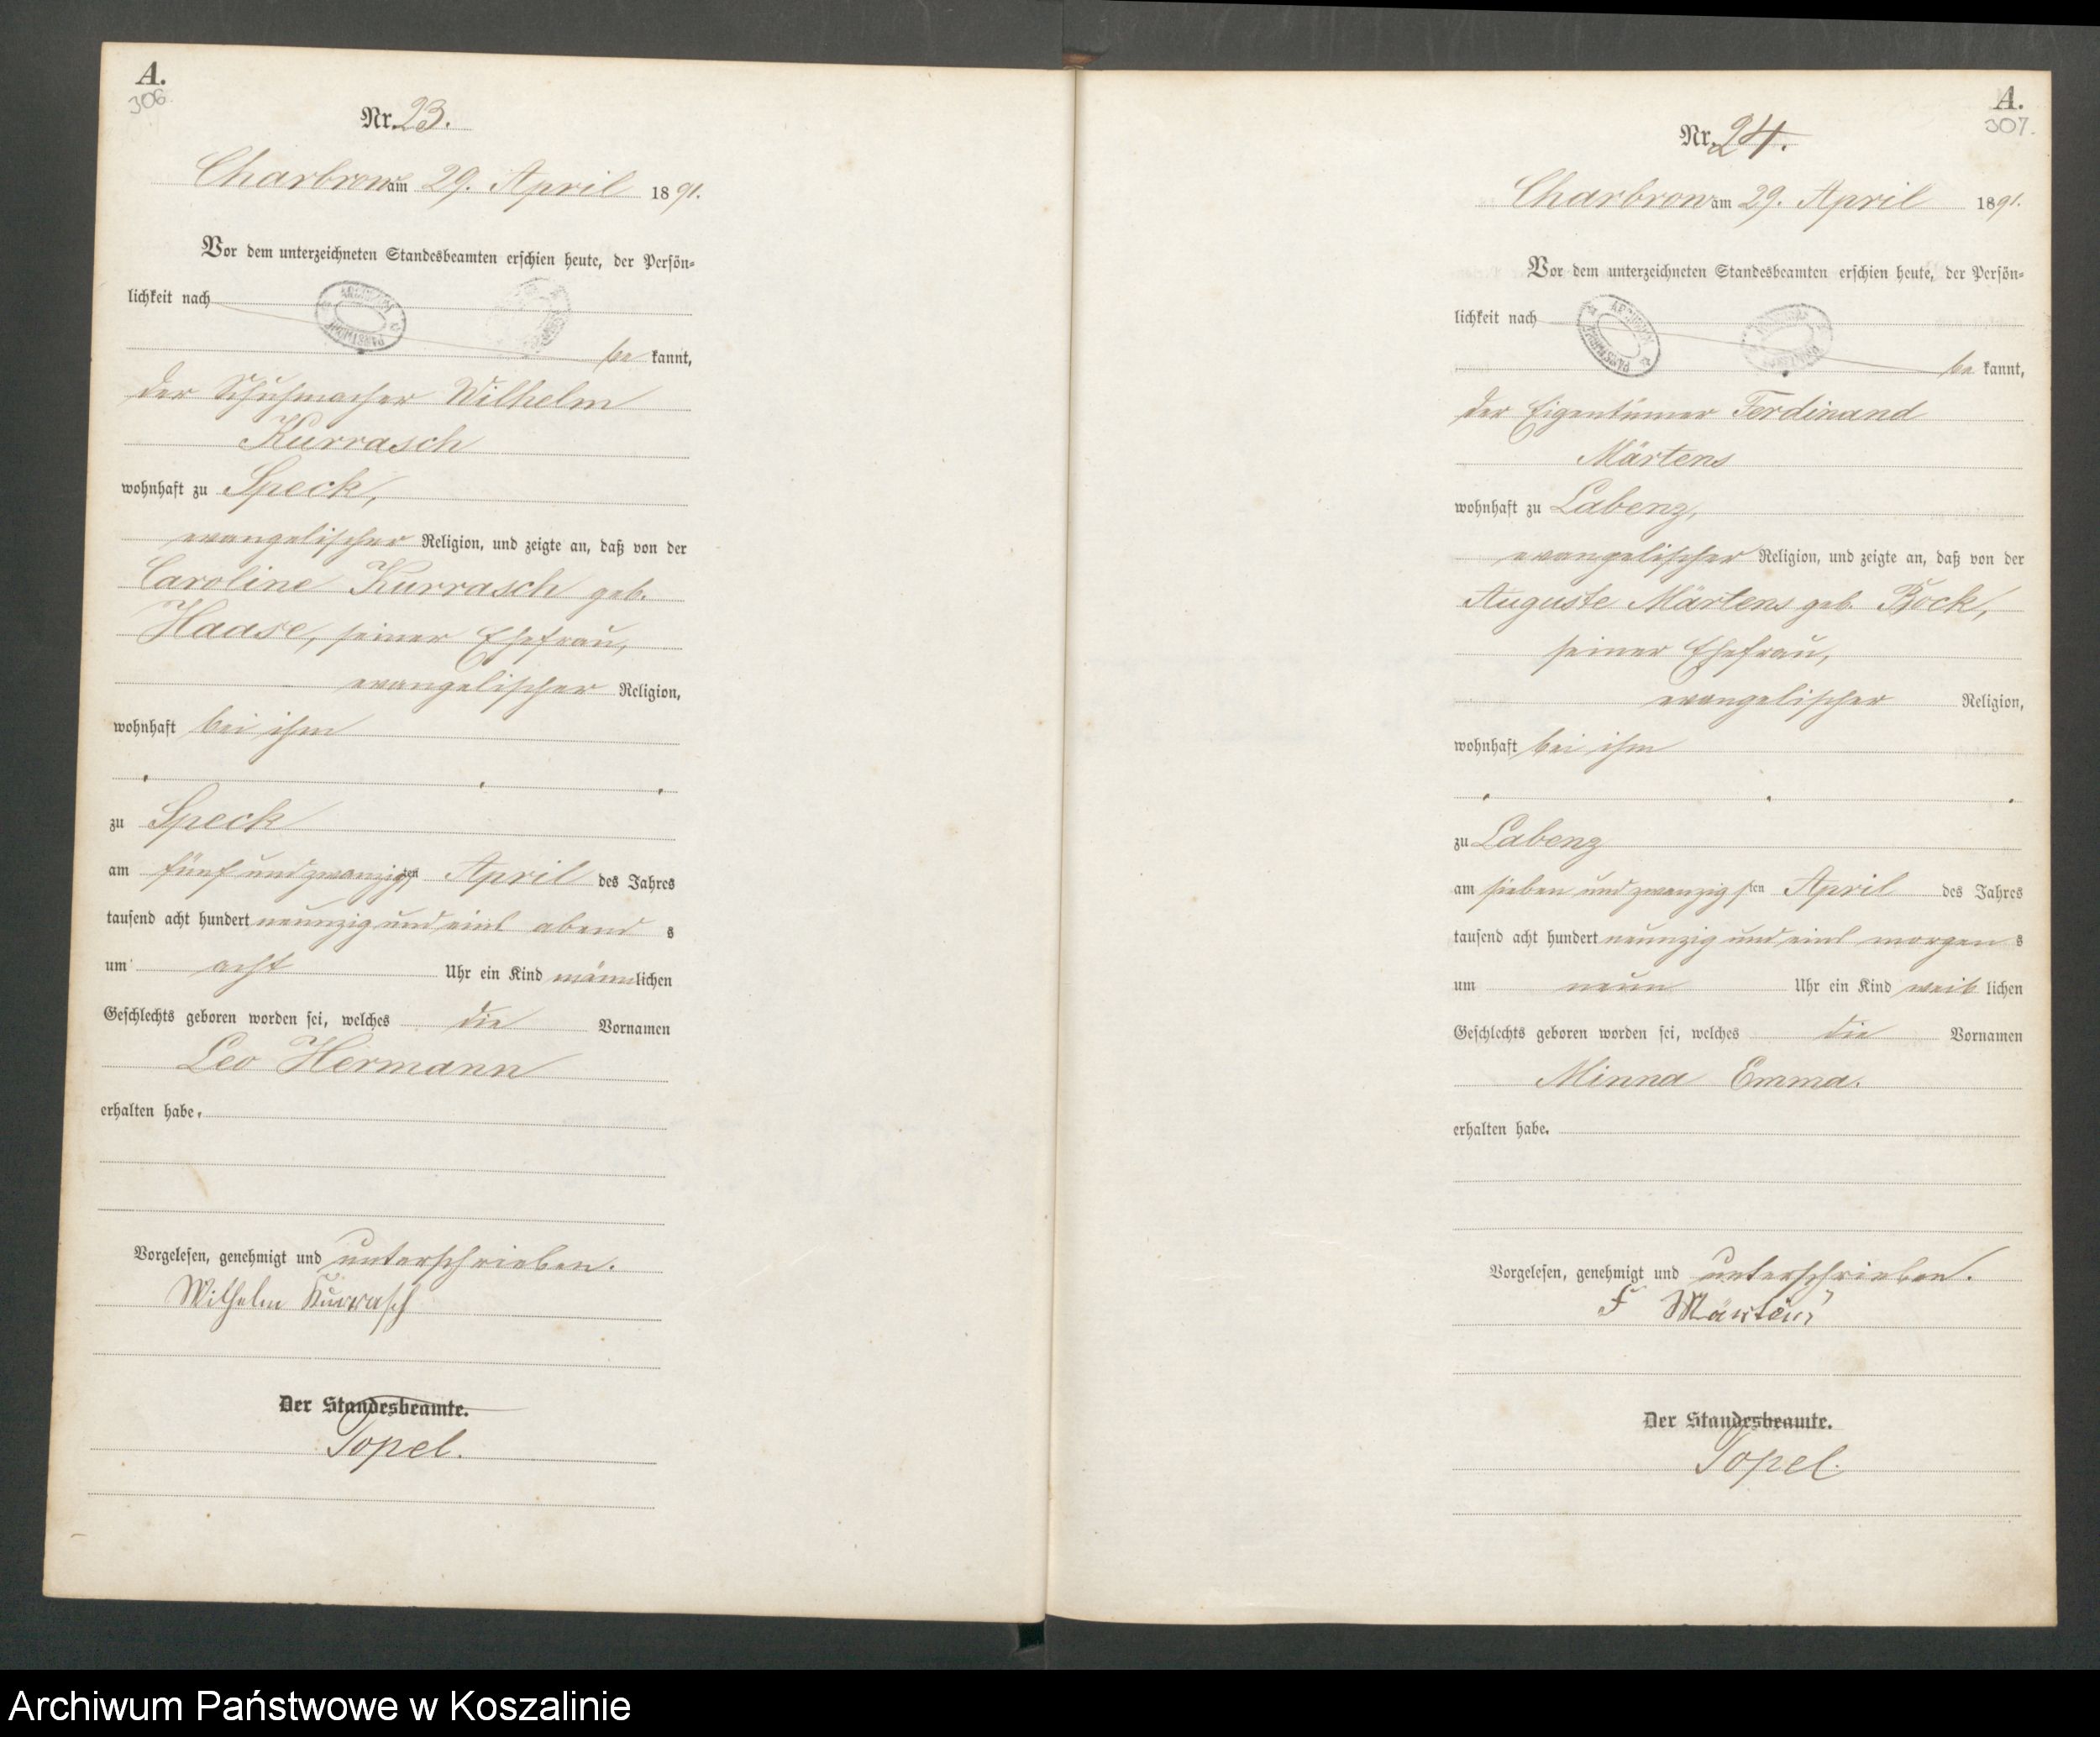 A.
306.
Nr. 23.
Charbrow am 29. April 1891.
Vor dem unterzeichneten Standesbeamten erschien heute, der Persön-
lichkeit nach
be kannt,
der Schuhmacher Wilhelm
Kurrasch
wohnhaft zu Speck,
evangelischer Religion, und zeigte an, daß von der
Caroline Kurrasch geb.
Haase, seiner Ehefrau,
evangelischer Religion,
wohnhaft bei ihm
zu Speck
am fünf und zwanzigsten April des Jahres
tausend acht hundert neunzig und eins abend s
um acht Uhr ein Kind männlichen
Geschlechts geboren worden sei, welches die Vornamen
Leo Hermann
erhalten habe.
Vorgelesen, genehmigt und unterschrieben.
Wilhelm Kurrasch
Der Standesbeamte.
Topel.
A.
307.
Nr. 24.
Charbrow am 29. April 1891.
Vor dem unterzeichneten Standesbeamten erschien heute, der Persön-
lichkeit nach
be kannt,
der Eigentümer Ferdinand
Märtens
wohnhaft zu Labenz,
evangelischer Religion, und zeigte an, daß von der
Auguste Märtens geb. Bock,
seiner Ehefrau,
evangelischer Religion,
wohnhaft bei ihm
zu Labenz
am sieben und zwanzigsten April des Jahres
tausend acht hundert neunzig und eins morgen s
um neun Uhr ein Kind weiblichen
Geschlechts geboren worden sei, welches die Vornamen
Minna Emma.
erhalten habe.
Vorgelesen, genehmigt und unterschrieben.
F Märtens
Der Standesbeamte.
Topel.
Archiwum Państwowe w Koszalinie